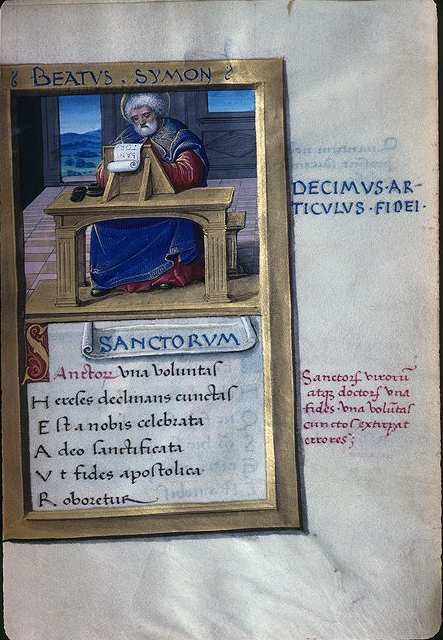 BEATVS · SYMON
SANCTORVM
Sanctoꝝ vna voluntas
Hereses declinans cunctas
Est a nobis celebrata
Adeo sanctificata
Vt fides apostolica·
Roboretur
DECIMVS·AR-
TICVLVS·FIDEI·
Sanctoꝝ virorū
atqꝫ doctoꝝ vna
fides· vna volūtas
cunctos extirpat
errores;